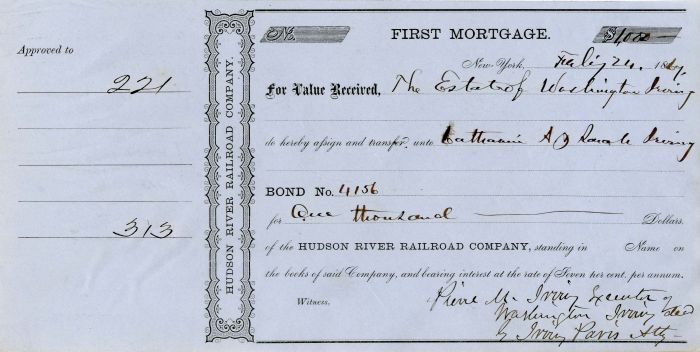 Approved to
221
313
HUDSON RIVER RAILROAD COMPANY.
No. FIRST MORTGAGE. $1,000
New-York, July 24. 186
For Value Received, The Estate of Washington Irving
do hereby assign and transfer, unto Catharine A & Sarah Irving
BOND No. 4156
for One thousand Dollars.
of the HUDSON RIVER RAILROAD COMPANY, standing in Name on
the books of said Company, and bearing interest at the rate of Seven per cent. per annum.
Witness. Pierre M. Irving Executor of
Washington Irving decd
by Irving Paris Atty